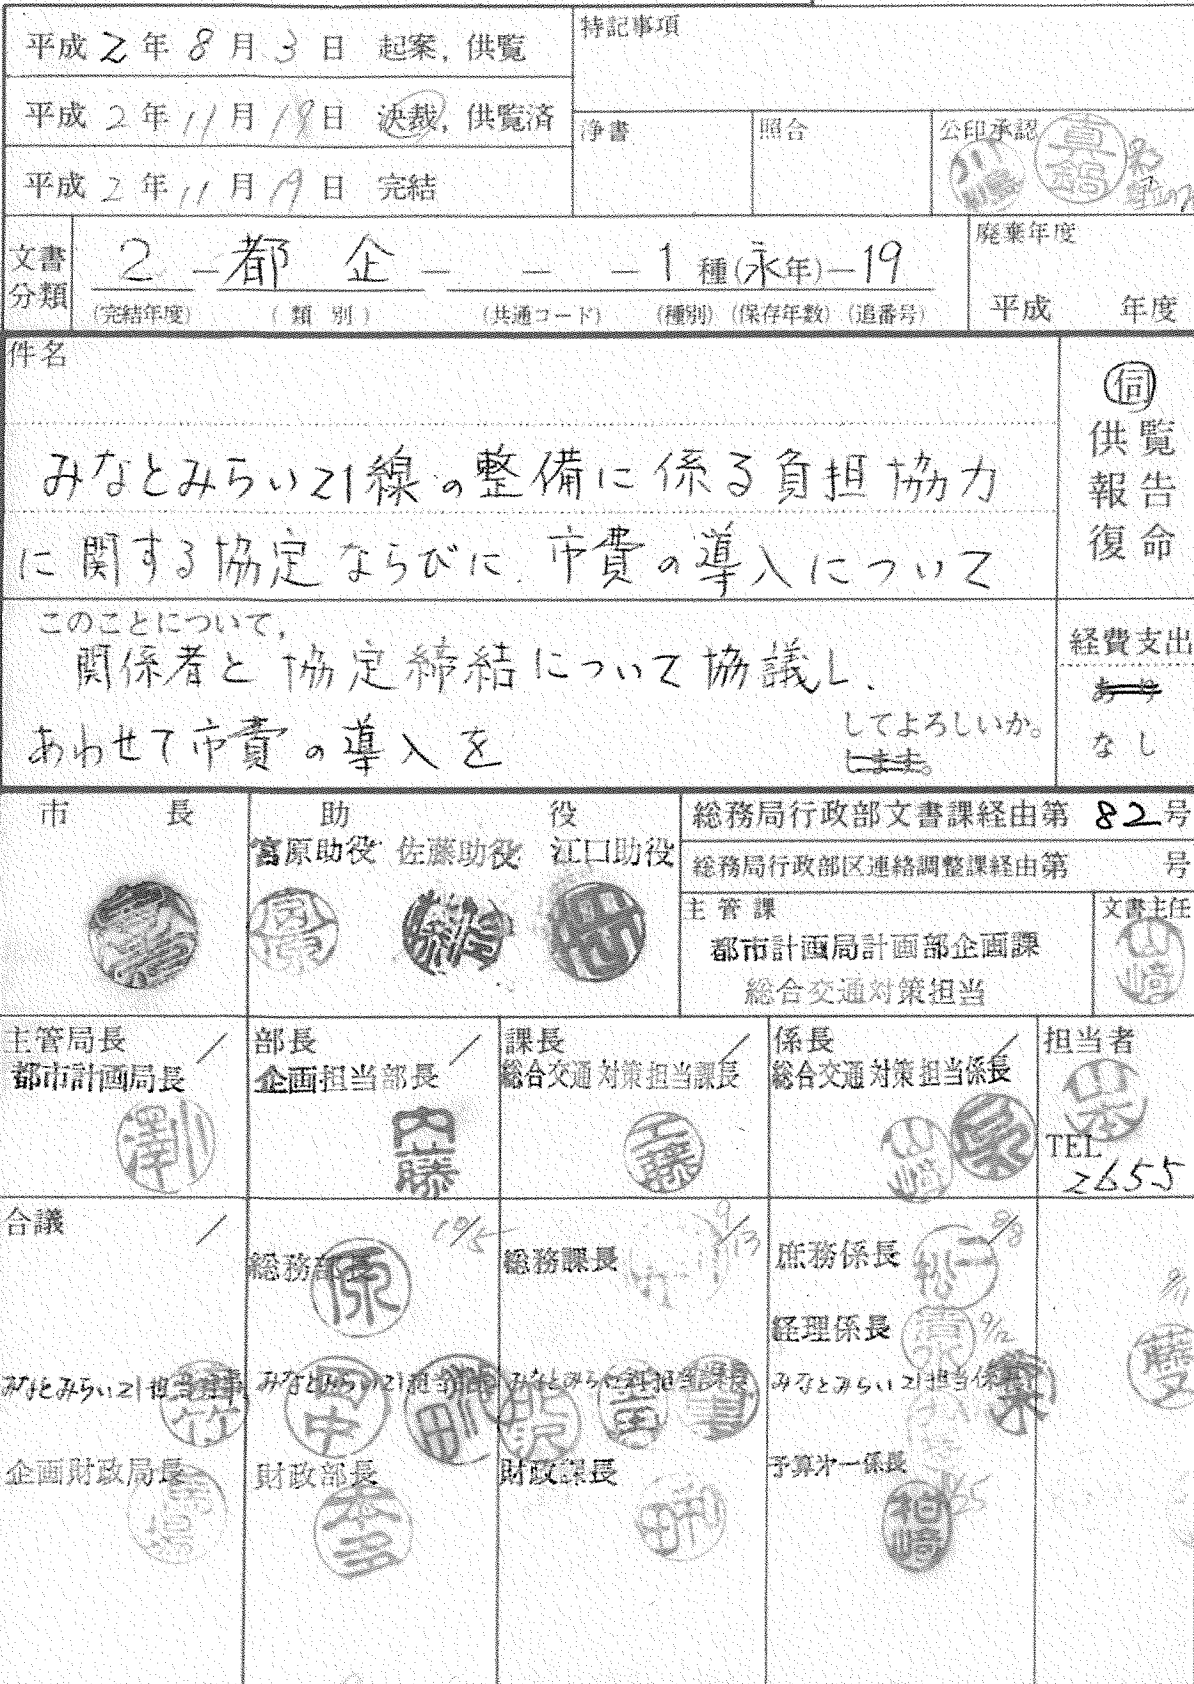 平成2年8月3日 起案, 供覧
平成2年11月19日 決裁, 供覧済
平成2年11月19日 完結
特記事項
浄書
照合
公印承認
真鍋
文書分類
2 - 都企 - - - 1種(永年)-19
(完結年度) (類別) (共通コード) (種別) (保存年数) (追番号)
廃棄年度
平成 年度
件名
みなとみらい21線の整備に係る負担協力
に関する協定ならびに、市費の導入について
伺
供覧
報告
復命
このことについて,
関係者と協定締結について協議し、
あわせて市費の導入を
してよろしいか。
します。
経費支出
あり
なし
市長
助役
宮原助役 佐藤助役 江口助役
総務局行政部文書課経由第82号
総務局行政部区連絡調整課経由第 号
主管課
都市計画局計画部企画課
総合交通対策担当
文書主任
山崎
主管局長 /
都市計画局長
部長 /
企画担当部長
内藤
課長 /
総合交通対策担当課長
工藤
係長 /
総合交通対策担当係長
山崎
担当者
山本
TEL
2655
合議 /
総務部長
原
10/5
総務課長
9/13
庶務係長
二松
経理係長
みなとみらい21担当理事
竹
みなとみらい21担当部長
田中
みなとみらい21担当課長
みなとみらい21担当係長
企画財政局長
財政部長
本多
財政課長
予算第一係長
柏崎